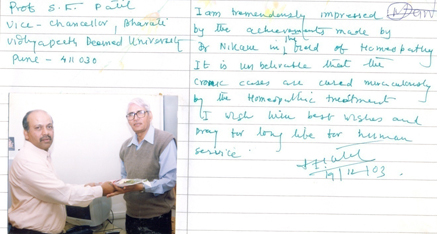 Prof S. F. Patil
Vice-Chancellor, Bharati
Vidhyapeeth Deemed University
Pune - 411030
I am tremendously impressed
by the achievements made by
Dr Nikam in the field of Homeopathy
It is unbelievable that the
cronic cases are cured miraculously
by the Homeopathic treatment
I wish him best wishes and
pray for long life for human
service.
19/12/03